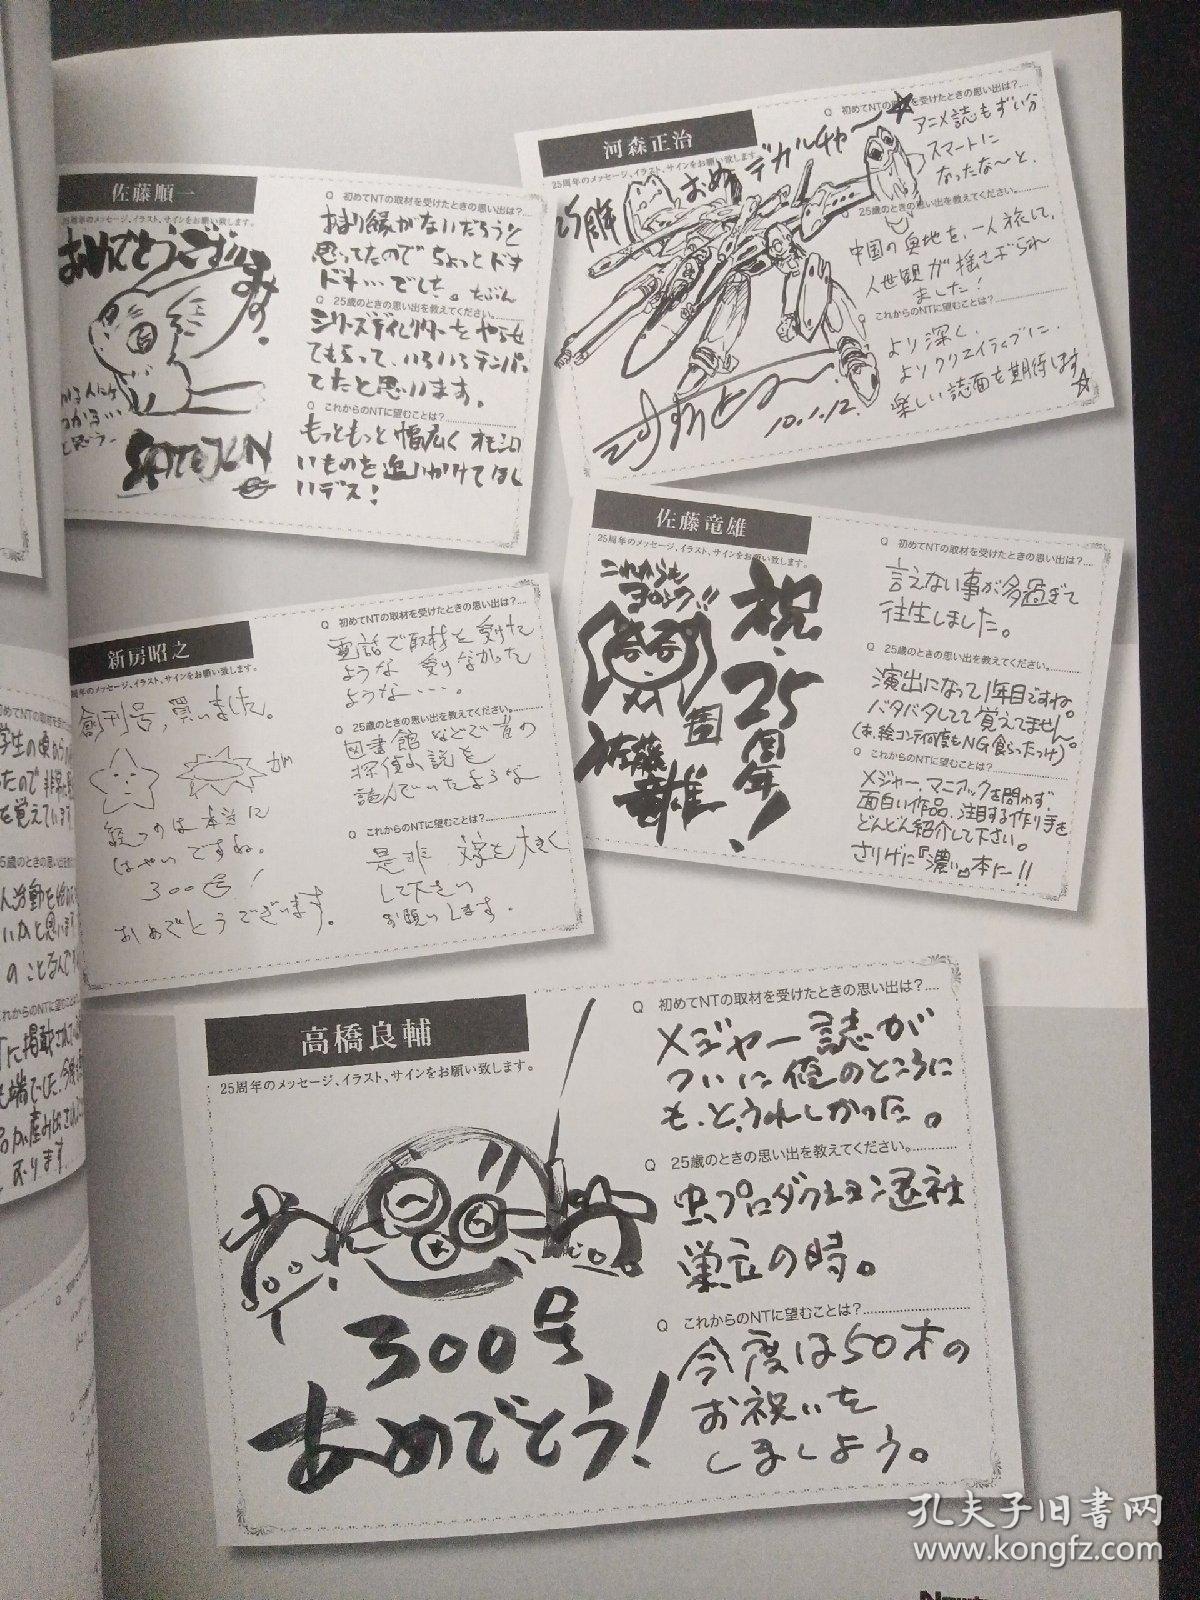 佐藤順一
25周年のメッセージ、イラスト、サインをお願い致します。
おめでとうござい
ます。
SATOJUN
Q 初めてNTの取材を受けたときの思い出は?....
あまり縁がないだろうと
思ってたのでちょっとドキ
ドキ…でした。たぶん
Q 25歳のときの思い出を教えてください。
シリーズディレクターをやらせ
てもらって、いろいろテンパっ
てたと思います。
Q これからのNTに望むことは?
もっともっと幅広くオモシロ
いものを追いかけてほし
いデス!
河森正治
25周年のメッセージ、イラスト、サインをお願い致します。
おめデカルチャー☆
10.1.12.
Q 初めてNTの取材を受けたときの思い出は?....
アニメ誌もずい分
スマートに
なったな〜と、
Q 25歳のときの思い出を教えてください。
中国の奥地を、一人旅して、
人世観が揺さぶられ
ました!
Q これからのNTに望むことは?
より深く、
よりクリエイティブに、
楽しい誌面を期待します☆
佐藤竜雄
25周年のメッセージ、イラスト、サインをお願い致します。
これからも
ヨロシク!!
祝・25周年!
佐藤竜雄
Q 初めてNTの取材を受けたときの思い出は?....
言えない事が多過ぎて
往生しました。
Q 25歳のときの思い出を教えてください。
演出になって1年目ですね。
バタバタしてて覚えてません。
(あ、絵コンテ何度もNG食らったっけ)
Q これからのNTに望むことは?
メジャー、マニアックを問わず、
面白い作品、注目する作り手を
どんどん紹介して下さい。
さりげに『濃い』本に!!
新房昭之
25周年のメッセージ、イラスト、サインをお願い致します。
創刊号、買いました。
が
経つのは本当に
はやいですね。
300号!
おめでとうございます。
Q 初めてNTの取材を受けたときの思い出は?....
電話で取材を受けた
ような 受けなかった
ような・・・・。
Q 25歳のときの思い出を教えてください。
図書館などで昔の
探偵小説を
読んでいたような
Q これからのNTに望むことは?
是非 を大きく
して下さい
お願いします。
高橋良輔
25周年のメッセージ、イラスト、サインをお願い致します。
300号
おめでとう!
Q 初めてNTの取材を受けたときの思い出は?....
メジャー誌が
ついに俺のところに
も、と、うれしかった。
Q 25歳のときの思い出を教えてください。
虫プロダクション退社
巣立の時。
Q これからのNTに望むことは?
今度は50才の
お祝いを
しましょう。
孔夫子旧書网
www.kongfz.com